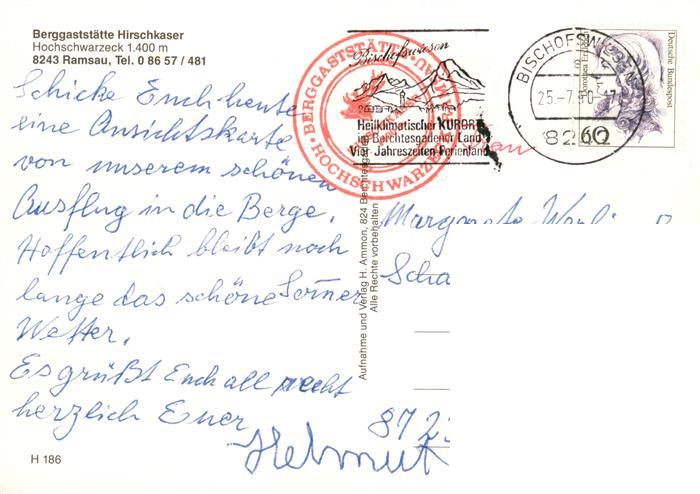 Berggaststätte Hirschkaser
Hochschwarzeck 1.400 m
8243 Ramsau, Tel. 0 86 57 / 481
Schicke Euch heute
eine Ansichtskarte
von unserem schönen
Ausflug in die Berge.
Hoffentlich bleibt noch
lange das schöne Somer
Wetter.
Es grüßt Euch all recht
herzlich Euer
Helmut
H 186
BERGGASTSTÄTTE
HOCHSCHWARZECK
Bischofswiesen
Heilklimatischer KURORT
im Berchtesgadener Land
Vier Jahreszeiten Ferienland
BISCHOFSWIESEN
25.-7.90-17
8242
60
Deutsche Bundespost
Aufnahme und Verlag H. Ammon, 824 Berchtesgaden
Alle Rechte vorbehalten
Frau
Margarete
Scha
872